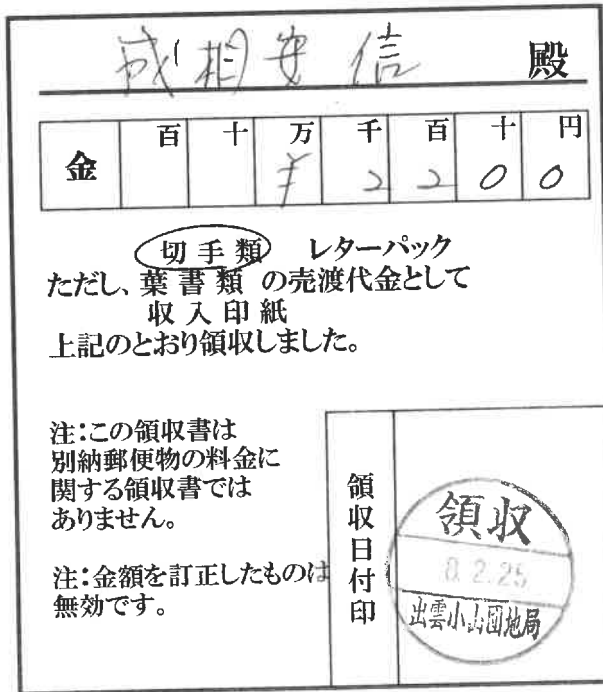 成相安信 殿
百 十 万 千 百 十 円
金 ¥ 2 2 0 0
切手類 レターパック
ただし、葉書類 の売渡代金として
収入印紙
上記のとおり領収しました。
注:この領収書は
別納郵便物の料金に
関する領収書では
ありません。
注:金額を訂正したものは
無効です。
領収日付印
領収
8.2.25
出雲小山団地局